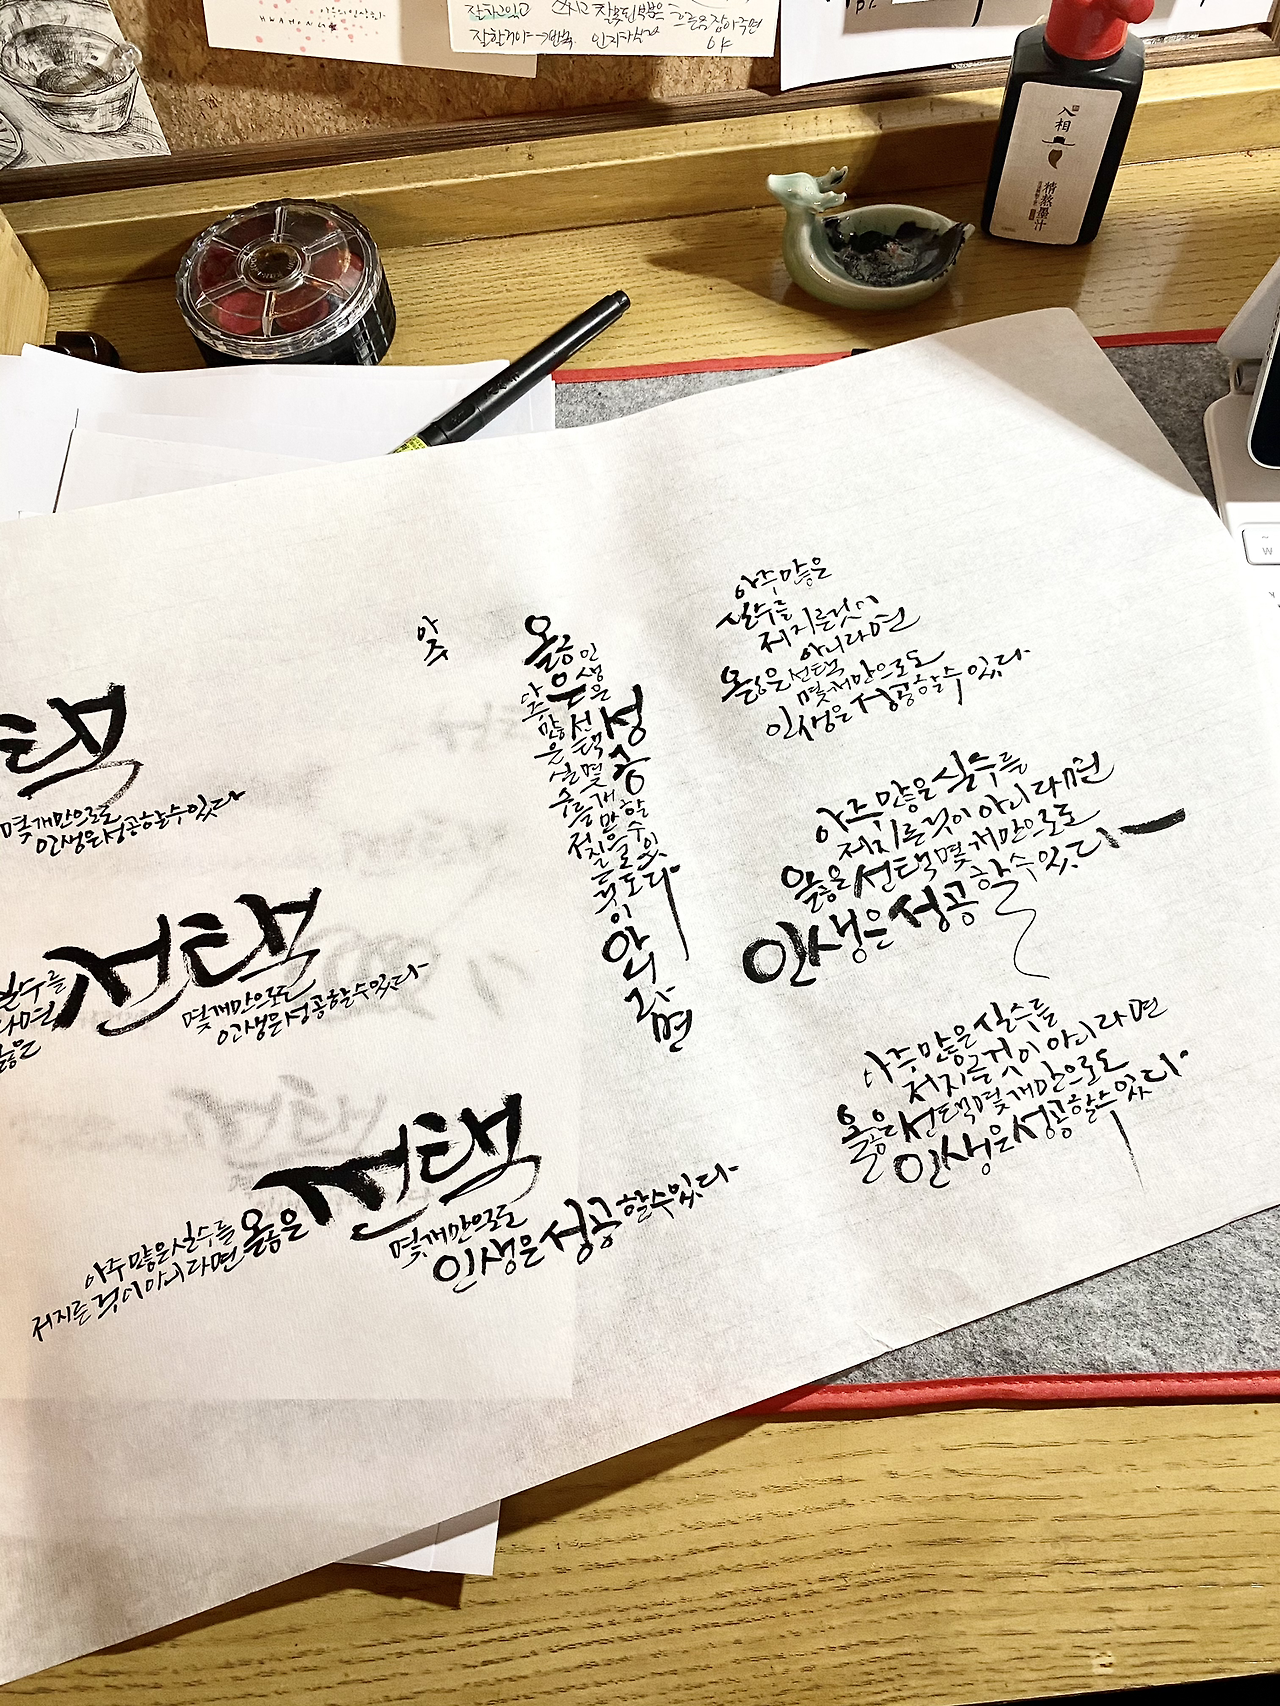 HWAHONG
잘하고있고
잘할거야→반복
入相
精熬墨汁
택
몇개만으로도
인생은성공할수있다
실수를
라면
옳은
선택
몇개만으로도
인생은성공할수있다
아주많은실수를
저지른것이아니라면
옳은
선택
몇개만으로도
인생은성공할수있다
아주
아주많은실수를저지른것이아니라면
옳은선택몇개만으로도
인생은성공할수있다
아주많은
실수를
저지른것이
아니라면
옳은선택
몇개만으로도
인생은성공할수있다
아주많은실수를
저지른것이아니라면
옳은선택몇개만으로도
인생은성공할수있다
아주많은실수를
저지른것이아니라면
옳은선택몇개만으로도
인생은성공할수있다
~
₩